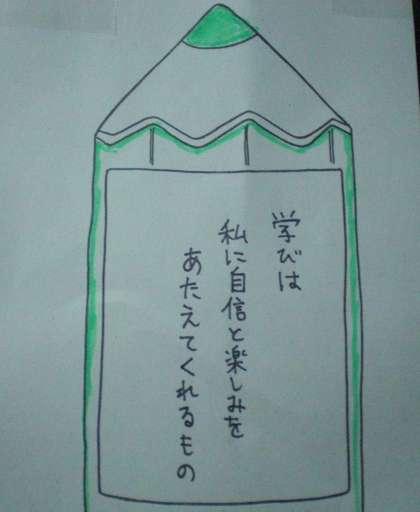 学びは
私に自信と楽しみを
あたえてくれるもの